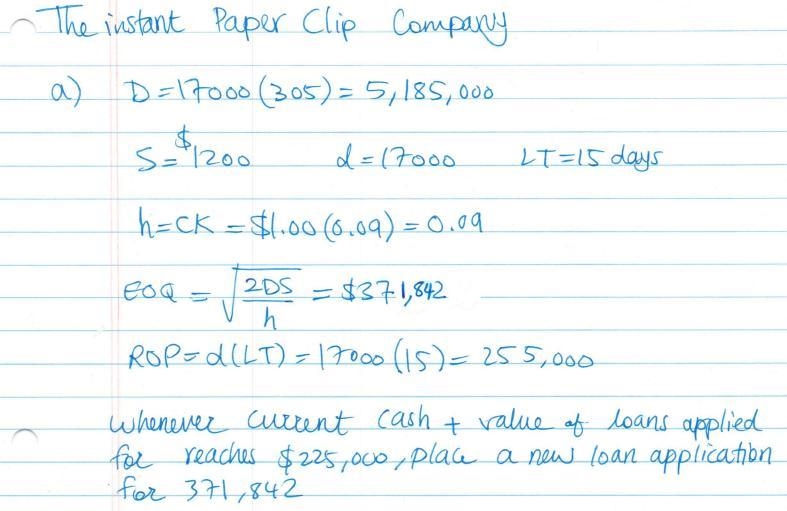 The instant Paper Clip Company
a) D=17000(305)= 5,185,000
S=$1200 d=17000 LT=15 days
h=CK = $1.00(0.09) = 0.09
EOQ = √(2DS/h) = $371,842
ROP=d(LT)=17000(15)= 255,000
whenever current cash + value of loans applied
for reaches $225,000, place a new loan application
for 371,842